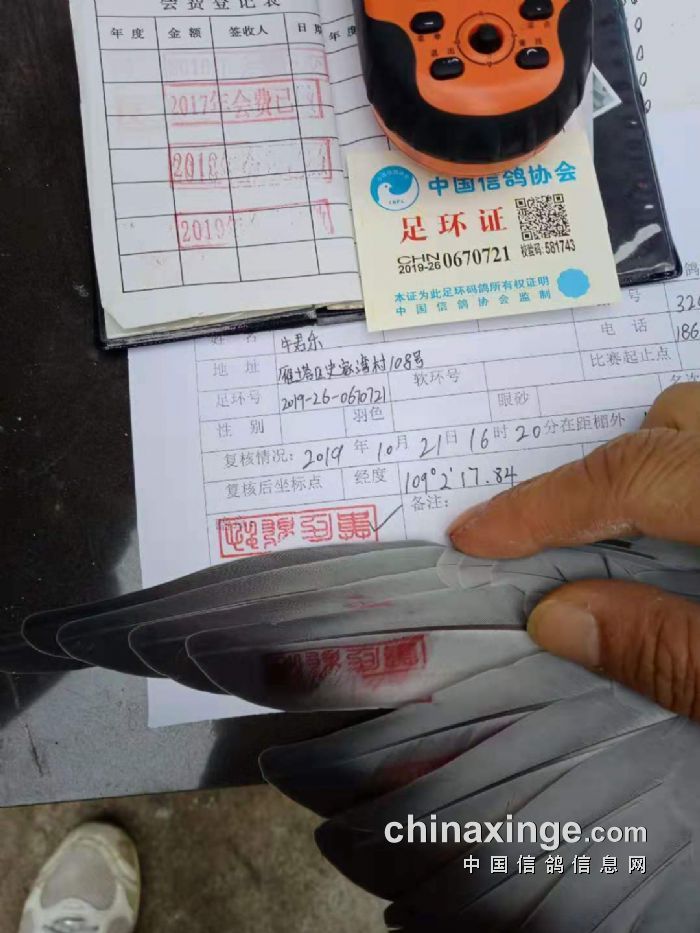 会费登记表
年度 金额 签收人 日期 年度
2017年会费已
2018
2019
中国信鸽协会
足环证
CHN
2019-26 0670721
校验码:581743
本证为此足环码鸽所有权证明
中国信鸽协会监制
姓名 牛君乐 号 32
地址 雁塔区史家湾村108号 电话 186
足环号 2019-26-0670721 软环号 比赛起止点
性别 羽色 眼砂 名次
复核情况: 2019年10月21日16时20分在距棚外
复核后坐标点 经度 109°2'17.84
备注:
chinaxinge.com
中国信鸽信息网